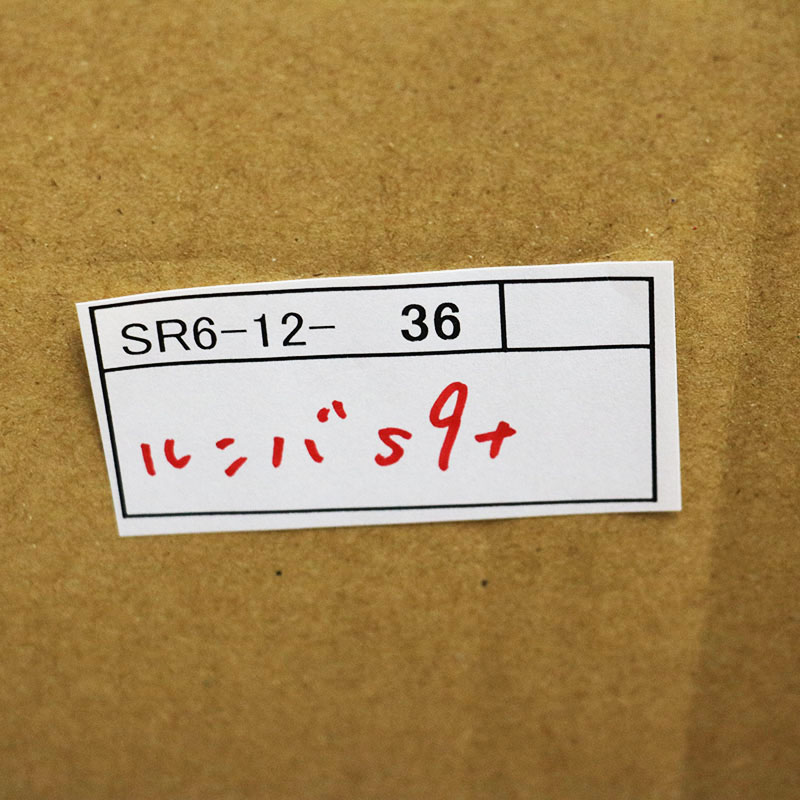 SR6-12- 36
ルンバ s9+